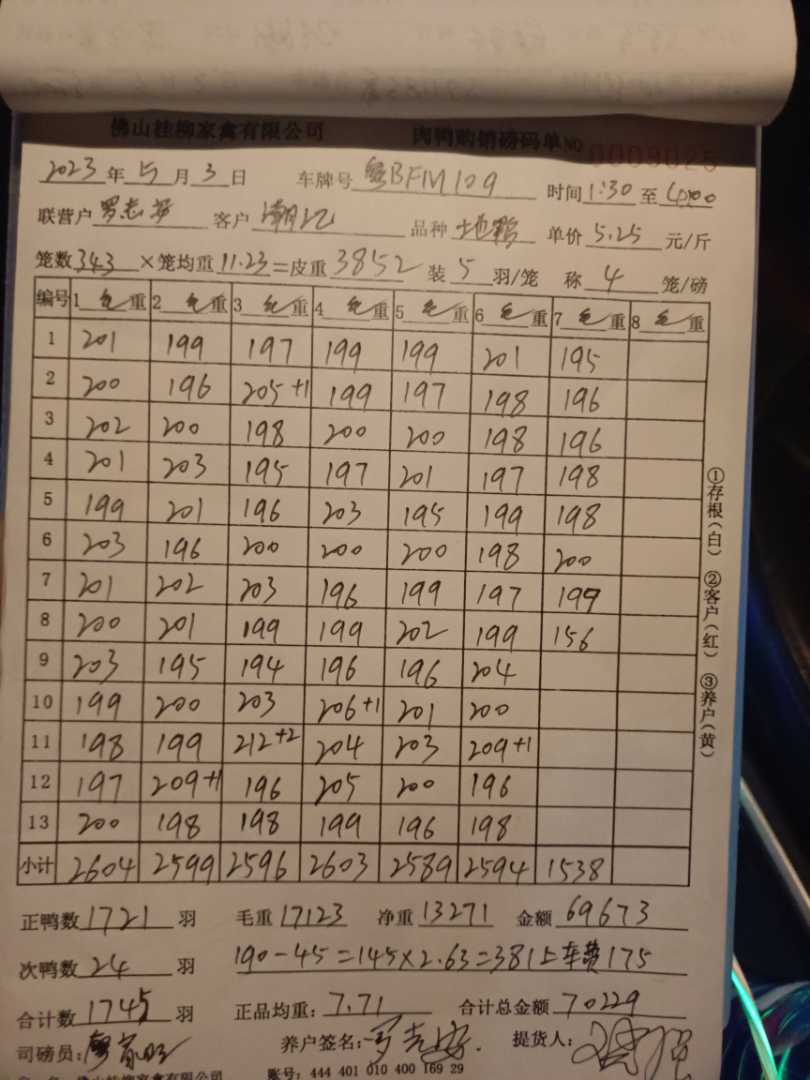 佛山桂柳家禽有限公司 肉鸭购销磅码单 NO 0009025
2023年 5月 3日 车牌号 BFM109 时间 1:30 至
联营户 客户 品种 单价 5.25 元/斤
笼数 343 ×笼均重 11.23 =皮重 3852 装 5 羽/笼 称 4 笼/磅
编号 1 毛重 2 毛重 3 毛重 4 毛重 5 毛重 6 毛重 7 毛重 8 毛重
1 201 199 197 199 199 201 195
2 200 196 205+1 199 197 198 196
3 202 200 198 200 200 198 196
4 201 203 195 197 201 197 198
5 199 201 196 203 195 199 198
6 203 196 200 200 200 198 200
7 201 202 203 196 199 197 199
8 200 201 199 199 202 199 156
9 203 195 194 196 196 204
10 199 200 203 206+1 201 200
11 198 199 212+2 204 203 209+1
12 197 209+1 196 205 200 196
13 200 198 198 199 196 198
小计 2604 2599 2596 2603 2589 2594 1538
正鸭数 1721 羽 毛重 17123 净重 13271 金额 69673
次鸭数 24 羽 190-45=145×2.63=381上车费175
合计数 1745 羽 正品均重: 7.71 合计总金额 70229
司磅员: 养户签名: 提货人:
佛山桂柳家禽有限公司 账号: 444 401 010 400 169 29
①存根(白) ②客户(红) ③养户(黄)